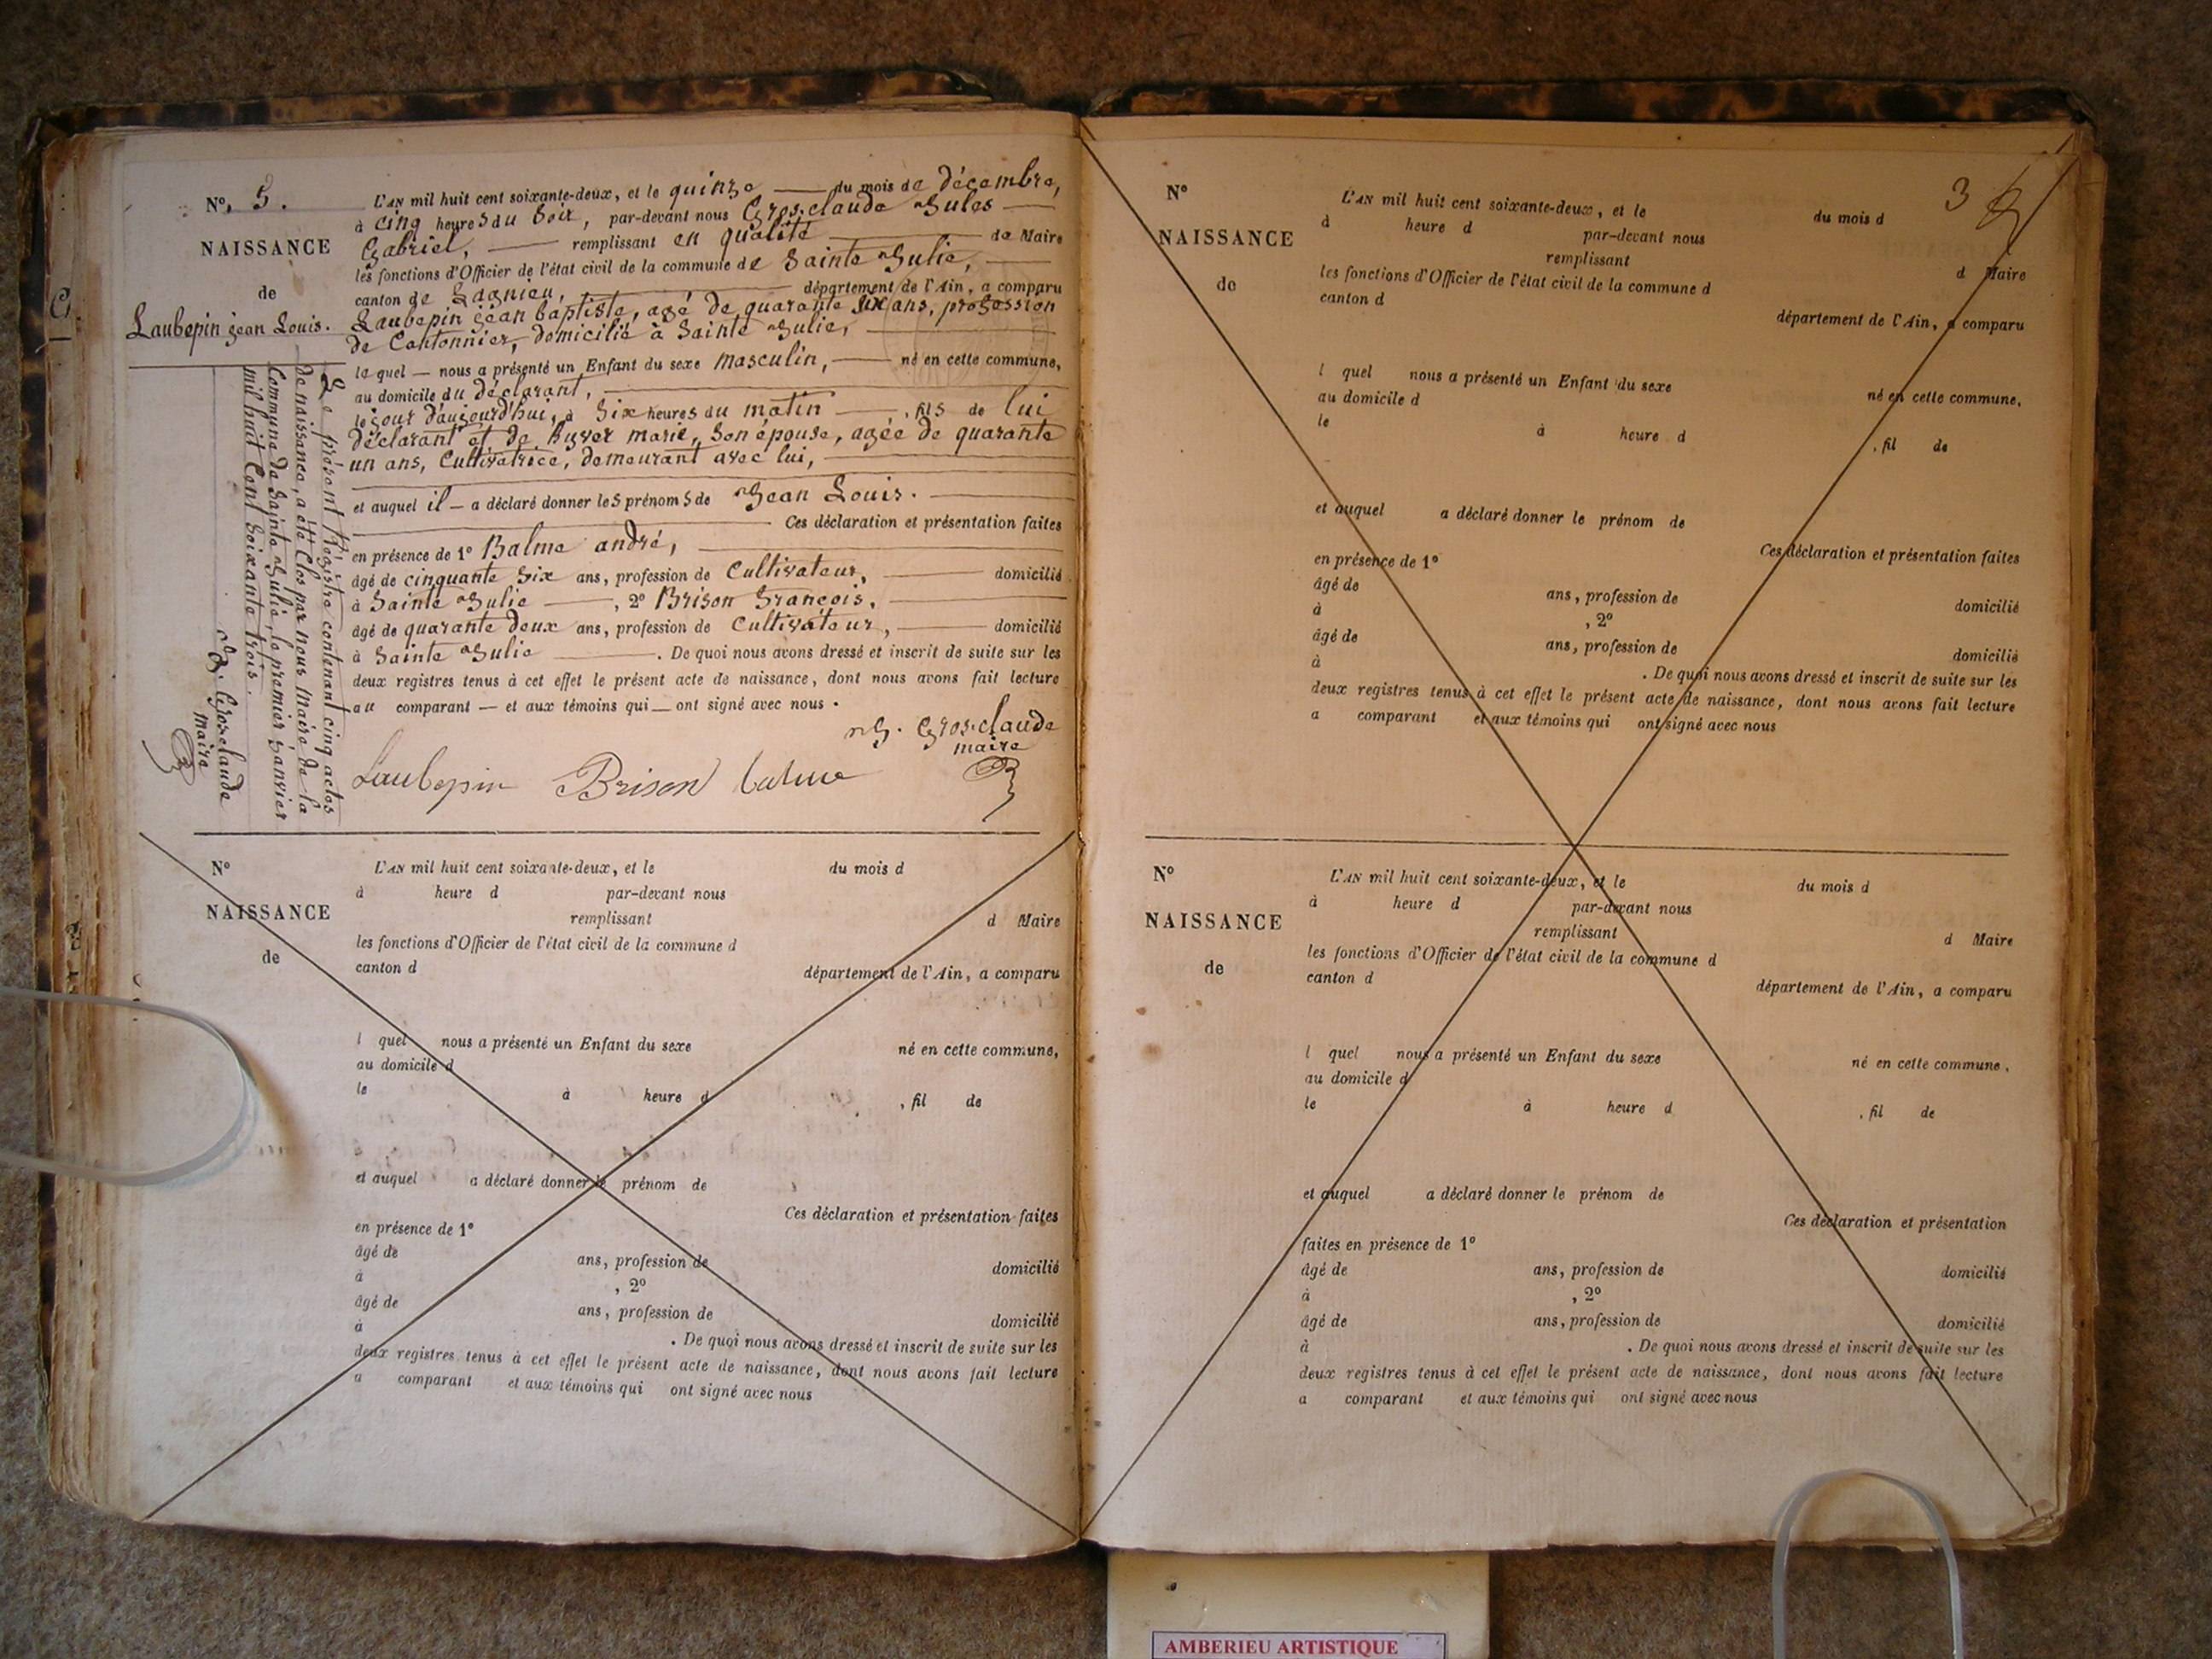 N°. 5.
NAISSANCE
de
Laubepin Jean Louis.
L'AN mil huit cent soixante-deux, et le quinze du mois de décembre,
à cinq heures du Soir, par-devant nous Gros-claude Jules
Gabriel, remplissant en qualité de Maire
les fonctions d'Officier de l'état civil de la commune de Sainte Julie,
canton de Lagnieu, département de l'Ain, a comparu
Laubepin Jean baptiste, agé de quarante ans, profession
de Cantonnier, domicilié à Sainte Julie,
le quel nous a présenté un Enfant du sexe masculin, né en cette commune,
au domicile du déclarant,
le jour d'aujourd'hui, à Six heures du matin, fils de lui
déclarant et de marie, Son épouse, agée de quarante
un ans, Cultivatrice, demeurant avec lui,
et auquel il a déclaré donner les prénoms de Jean Louis.
Ces déclaration et présentation faites
en présence de 1° Balme andré,
âgé de cinquante Six ans, profession de Cultivateur, domicilié
à Sainte Julie, 2° Brison François,
âgé de quarante deux ans, profession de Cultivateur, domicilié
à Sainte Julie. De quoi nous avons dressé et inscrit de suite sur les
deux registres tenus à cet effet le présent acte de naissance, dont nous avons fait lecture
au comparant et aux témoins qui ont signé avec nous.
J. Gros-claude
maire
Laubepin Brison balme
Le présent Régistre contenant cinq actes
de naissance, a été Clos par nous Maire de la
Commune de Sainte Julie, le premier Janvier
mil huit Cent Soixante trois.
J. Grosclaude
maire
N°
NAISSANCE
de
L'AN mil huit cent soixante-deux, et le du mois d
à heure d par-devant nous
remplissant d Maire
les fonctions d'Officier de l'état civil de la commune d
canton d département de l'Ain, a comparu
l quel nous a présenté un Enfant du sexe né en cette commune,
au domicile d
le à heure d , fil de
et auquel a déclaré donner le prénom de
Ces déclaration et présentation faites
en présence de 1°
âgé de ans, profession de domicilié
à , 2°
âgé de ans, profession de domicilié
à . De quoi nous avons dressé et inscrit de suite sur les
deux registres tenus à cet effet le présent acte de naissance, dont nous avons fait lecture
a comparant et aux témoins qui ont signé avec nous
3
N°
NAISSANCE
de
L'AN mil huit cent soixante-deux, et le du mois d
à heure d par-devant nous
remplissant d Maire
les fonctions d'Officier de l'état civil de la commune d
canton d département de l'Ain, a comparu
l quel nous a présenté un Enfant du sexe né en cette commune,
au domicile d
le à heure d , fil de
et auquel a déclaré donner le prénom de
Ces déclaration et présentation faites
en présence de 1°
âgé de ans, profession de domicilié
à , 2°
âgé de ans, profession de domicilié
à . De quoi nous avons dressé et inscrit de suite sur les
deux registres tenus à cet effet le présent acte de naissance, dont nous avons fait lecture
a comparant et aux témoins qui ont signé avec nous
N°
NAISSANCE
de
L'AN mil huit cent soixante-deux, et le du mois d
à heure d par-devant nous
remplissant d Maire
les fonctions d'Officier de l'état civil de la commune d
canton d département de l'Ain, a comparu
l quel nous a présenté un Enfant du sexe né en cette commune,
au domicile d
le à heure d , fil de
et auquel a déclaré donner le prénom de
Ces déclaration et présentation
faites en présence de 1°
âgé de ans, profession de domicilié
à , 2°
âgé de ans, profession de domicilié
à . De quoi nous avons dressé et inscrit de suite sur les
deux registres tenus à cet effet le présent acte de naissance, dont nous avons fait lecture
a comparant et aux témoins qui ont signé avec nous
AMBERIEU ARTISTIQUE